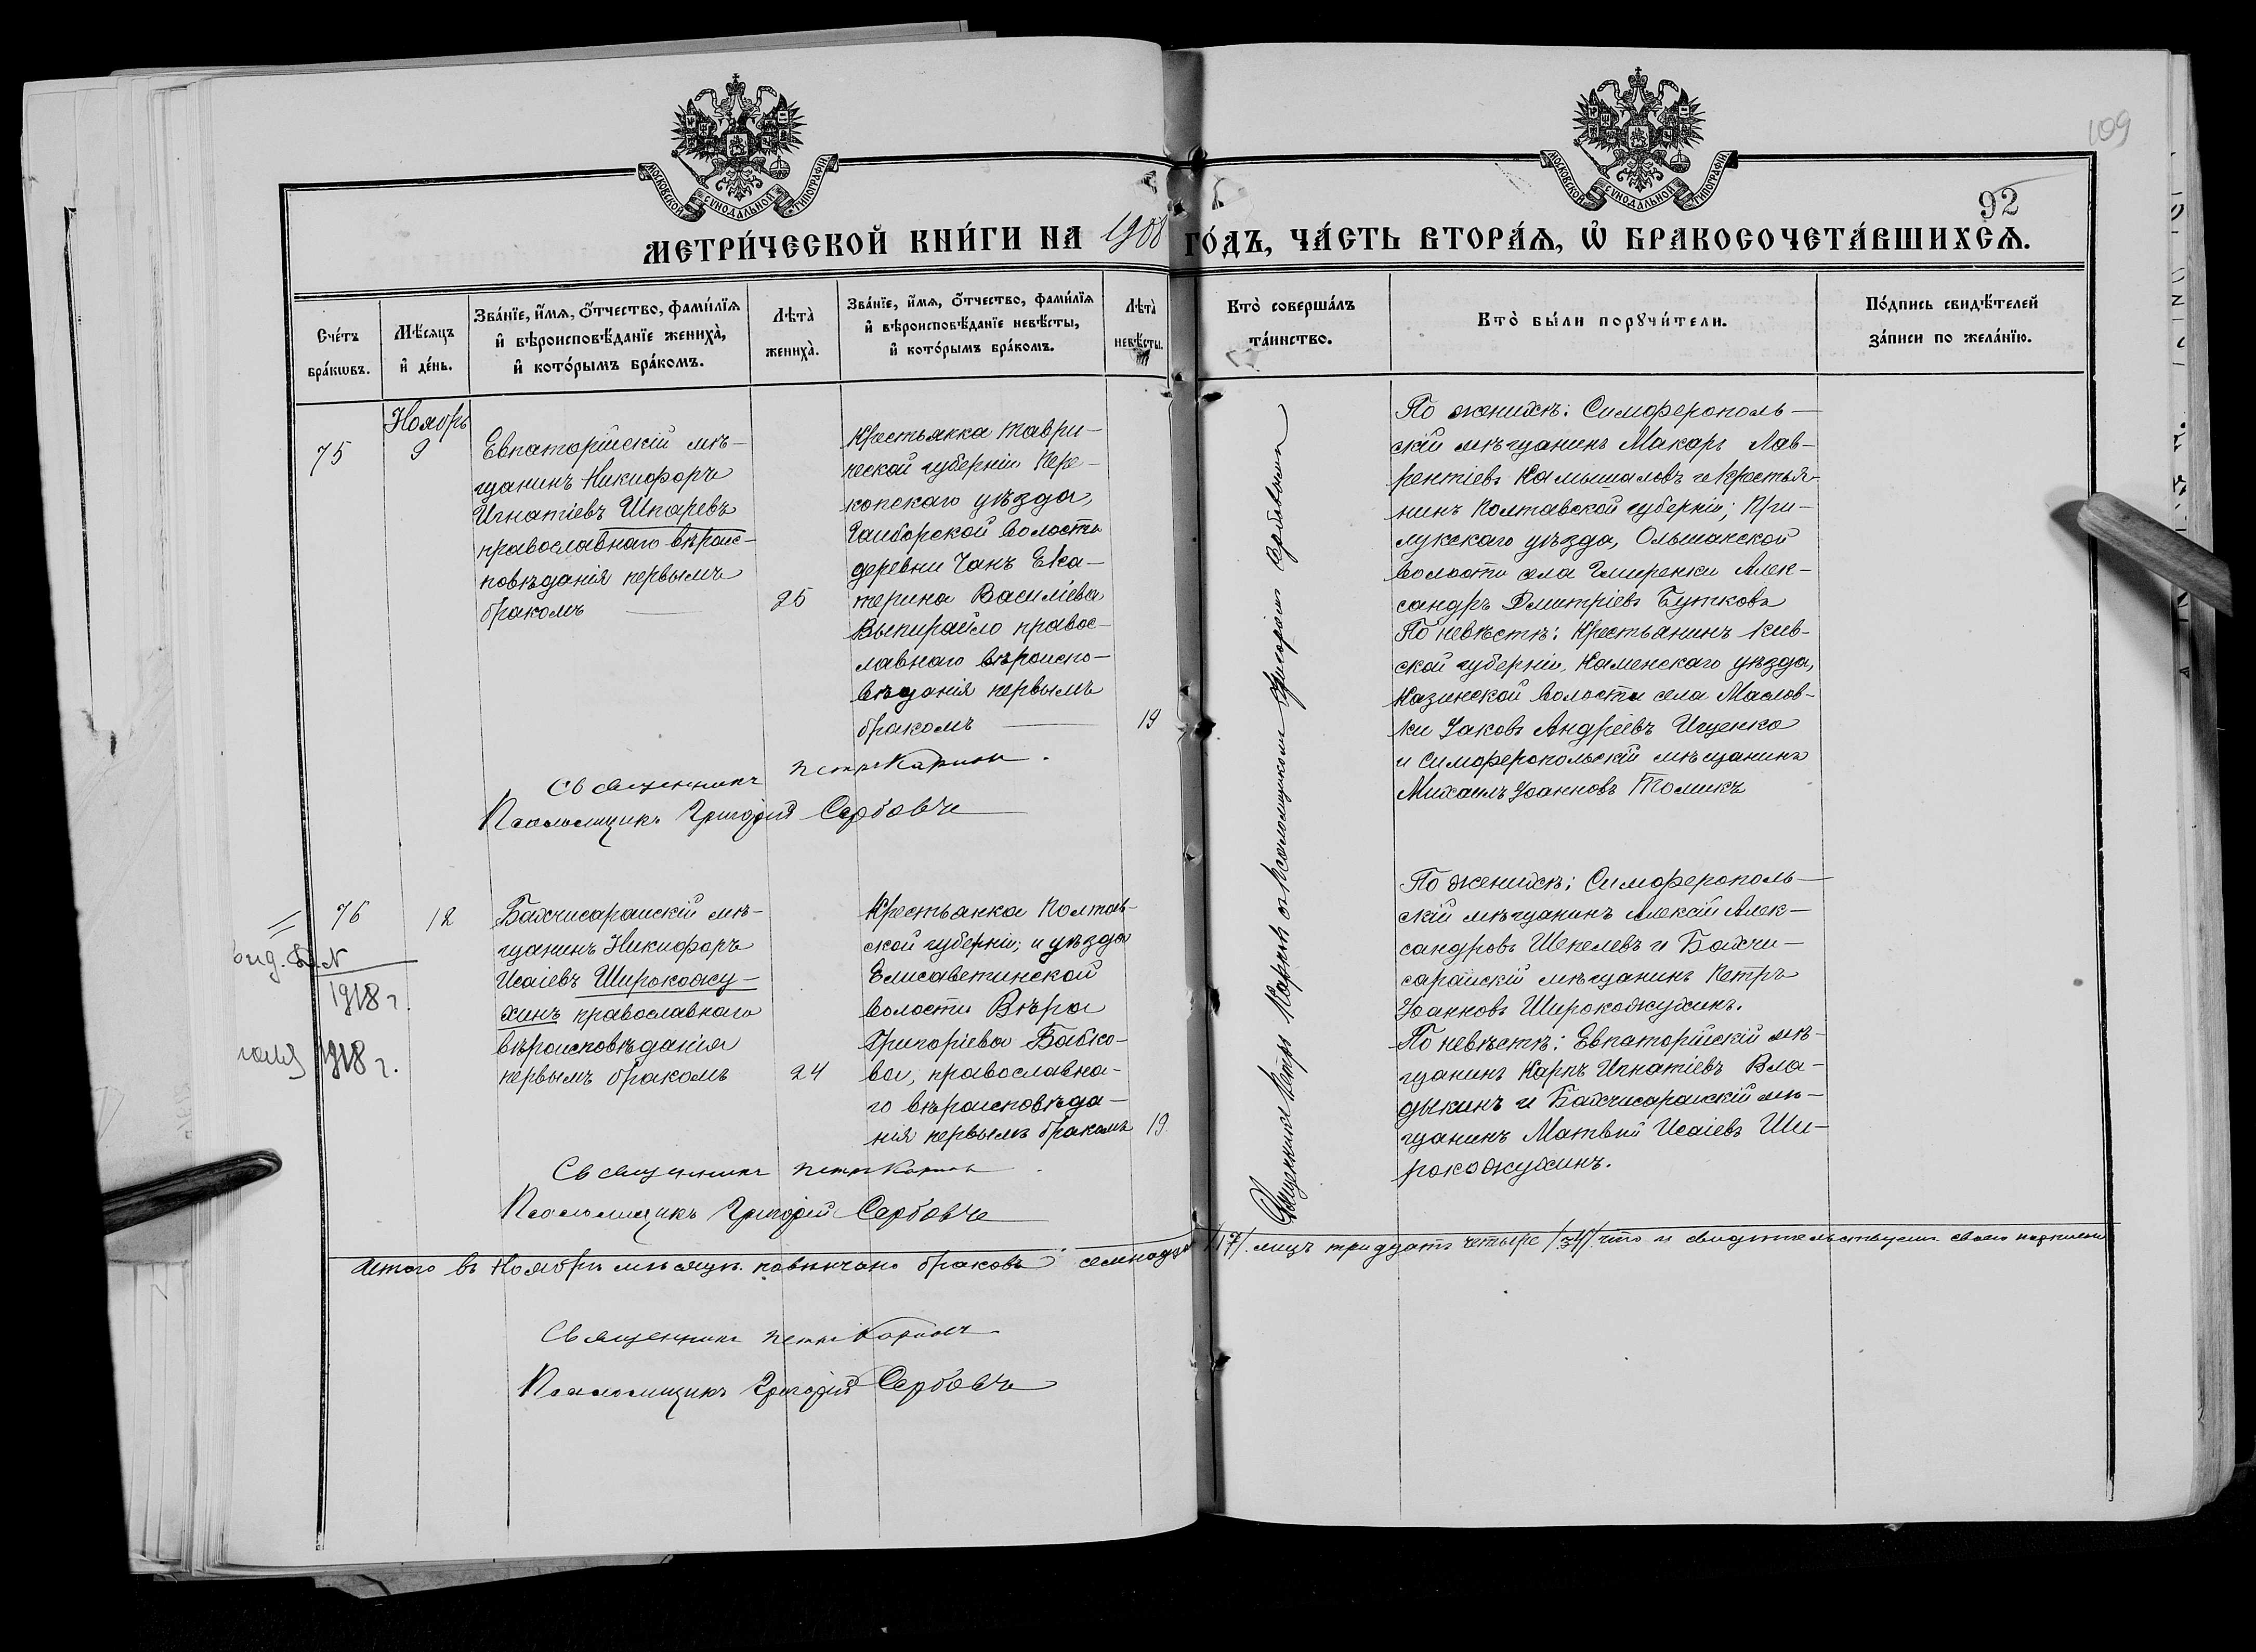 109
92
МОСКОВСКОЙ СѴНОДАЛЬНОЙ ТИПОГРАФІИ
МОСКОВСКОЙ СѴНОДАЛЬНОЙ ТИПОГРАФІИ
МЕТРИ́ЧЕСКОЙ КНИ́ГИ НА 1908 ГО́ДЪ, ЧА́СТЬ ВТОРА́Ѧ, Ѡ҆ БРАКОСОЧЕТА́ВШИХСѦ.
Счéтъ бра́кѡвъ.
Мѣ́сѧцъ и҆ де́нь.
Зва́нїе, и҆́мѧ, ѻ҆́тчество, фами́лїѧ
и҆ вѣроисповѣ́данїе жениха̀,
и҆ кото́рымъ бра́комъ.
Лѣта̀ жениха̀.
Зва́нїе, и҆́мѧ, ѻ҆́тчество, фами́лїѧ
и҆ вѣроисповѣ́данїе невѣ́сты,
и҆ кото́рымъ бра́комъ.
Лѣта̀ невѣ́сты.
Кто̀ соверша́лъ
та́инство.
Кто̀ бы́ли порꙋчи́тели.
По́дпись свидѣ́телей
за́писи по жела́нїю.
75
Ноябрь
9
Евпаторійскій мѣ-
щанинъ Никифоръ
Игнатіевъ Шпаревъ
православнаго вѣроис-
повѣданія первымъ
бракомъ
25
Крестьянка Таври-
ческой губерніи Пере-
копскаго уѣзда,
волости
деревни Чанъ Ека-
терина Василіева
Выпирайло правос-
лавнаго вѣроиспо-
вѣданія первымъ
бракомъ
19
Священникъ Петръ
Псаломщикъ Григорій Сербовъ
Священникъ Петръ и Псаломщикомъ Григоріемъ Сербовымъ
По женихѣ: Симферополь-
скій мѣщанинъ Макаръ Лав-
рентіевъ Камышаловъ и Крестья-
нинъ Полтавской губерніи; При-
лукскаго уѣзда, Ольшанской
волости села Гмиренки Алек-
сандръ Дмитріевъ Бутковъ
По невѣстѣ: Крестьянинъ Кіев-
ской губерніи, Каменскаго уѣзда,
Казинской волости села Маслов-
ки Іаковъ Андріевъ Ищенко
и Симферопольскій мѣщанинъ
Михаилъ Іоанновъ Томикъ
76
12
вид. N
1918 г.
1918 г.
Бахчисарайскій мѣ-
щанинъ Никифоръ
Исаіевъ Широкожу-
хинъ православнаго
вѣроисповѣданія
первымъ бракомъ
24
Крестьянка Полтав-
ской губерніи; и уѣзда
Елисаветинской
волости Вѣра
Григоріева Бабко-
ва, православна-
го вѣроисповѣда-
нія первымъ бракомъ
19
По женихѣ: Симферополь-
скій мѣщанинъ Алексій Алек-
сандровъ Шепелевъ и Бахчи-
сарайскій мѣщанинъ Петръ
Іоанновъ Широкожухинъ.
По невѣстѣ: Евпаторійскій мѣ-
щанинъ Карпъ Игнатіевъ Вла-
дыкинъ и Бахчисарайскій мѣ-
щанинъ Матвѣй Исаіевъ Ши-
рокожухинъ.
Священникъ Петръ
Псаломщикъ Григорій Сербовъ
Итого въ Ноябрѣ мѣсяцѣ повѣнчано браковъ семнадцать /17/ лицъ тридцать четыре /34/ что и свидѣтельствуемъ своею подписью
Священникъ Петръ
Псаломщикъ Григорій Сербовъ